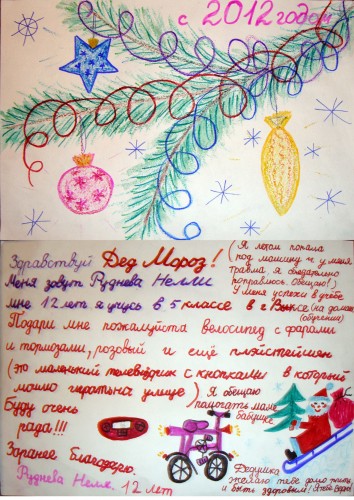 с 2012 годом
Здравствуй Дед Мороз!
(Я летом попала
под машину и у меня
травма, я обязательно
поправлюсь. Обещаю!)
Меня зовут Руднева Нелли
У меня успехи в учёбе
мне 12 лет я учусь в 5 классе в г.
(на домаш
обучении)
Подари мне пожалуйста велосипед с фарами
и тормозами, розовый и ещё плэйстейшен
(это маленький телевизорик с кнопками в который
можно играть на улице)
Я обещаю
помогать маме
бабушке
Буду очень
рада!!!
Заранее благодарю.
Руднева Нелли. 12 лет
Дедушка
желаю тебе долго жить
и быть здоровым!